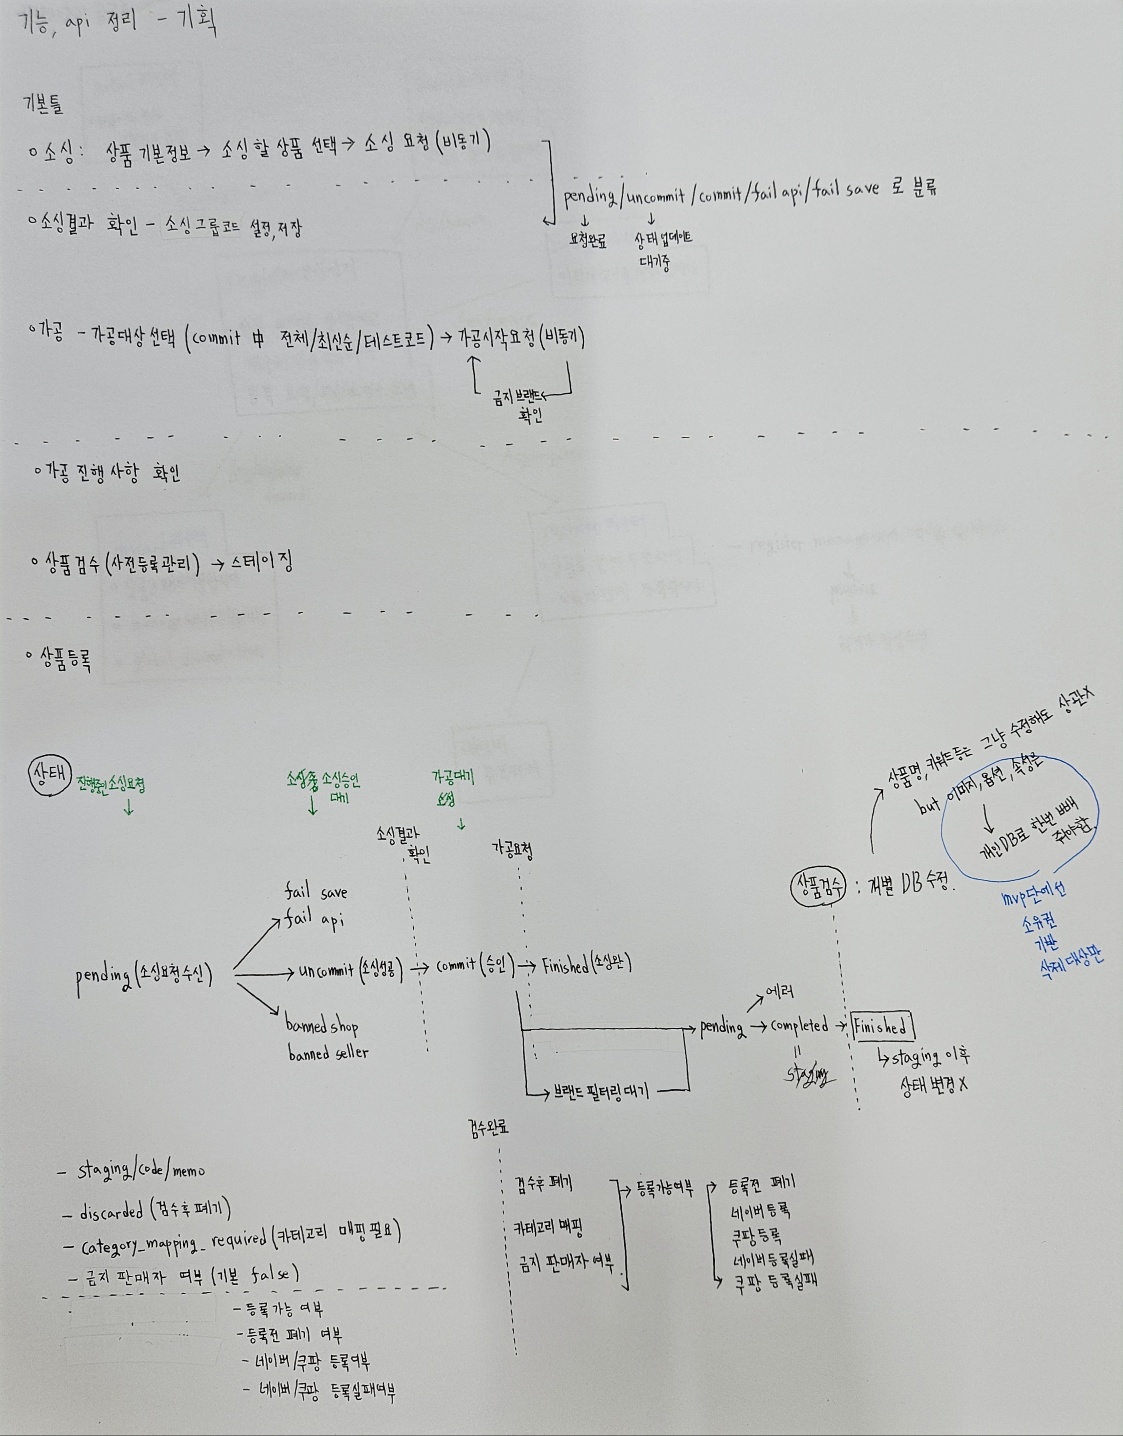 기능, api 정리 - 기획
기본틀
○ 소싱: 상품 기본정보 → 소싱 할 상품 선택 → 소싱 요청 (비동기)
pending/uncommit/commit/fail api/fail save 로 분류
↓ ↓
요청완료 상태 업데이트
대기중
○ 소싱결과 확인 - 소싱그룹코드 설정, 저장
○ 가공 - 가공대상 선택 (commit 中 전체/최신순/테스트코드) → 가공시작요청 (비동기)
금지브랜드
확인
○ 가공 진행 사항 확인
○ 상품검수 (사전등록관리) → 스테이징
○ 상품등록
상태
진행중인 소싱요청
↓
소싱승인
대기
↓
가공대기
요청
↓
소싱결과
확인
가공요청
fail save
fail api
pending (소싱요청 수신) → uncommit (소싱성공) → commit (승인) → Finished (소싱완)
banned shop
banned seller
브랜드 필터링 대기
에러
pending → completed → Finished
=
staging
↳ staging 이후
상태 변경 X
상품검수 : 개별 DB 수정.
상품명, 키워드등은 그냥 수정해도 상관X
but 이미지, 옵션, 속성은
개인DB로 한번 빼
줘야함
mvp단에선
소유권
기반
삭제 대상판
검수완료
- staging/code/memo
- discarded (검수후 폐기)
- category_mapping_required (카테고리 매핑 필요)
- 금지 판매자 여부 (기본 false)
- 등록가능 여부
- 등록전 폐기 여부
- 네이버/쿠팡 등록여부
- 네이버/쿠팡 등록실패여부
검수후 폐기
카테고리 매핑
금지 판매자 여부
→ 등록가능여부
등록전 폐기
네이버등록
쿠팡등록
네이버등록실패
쿠팡 등록실패